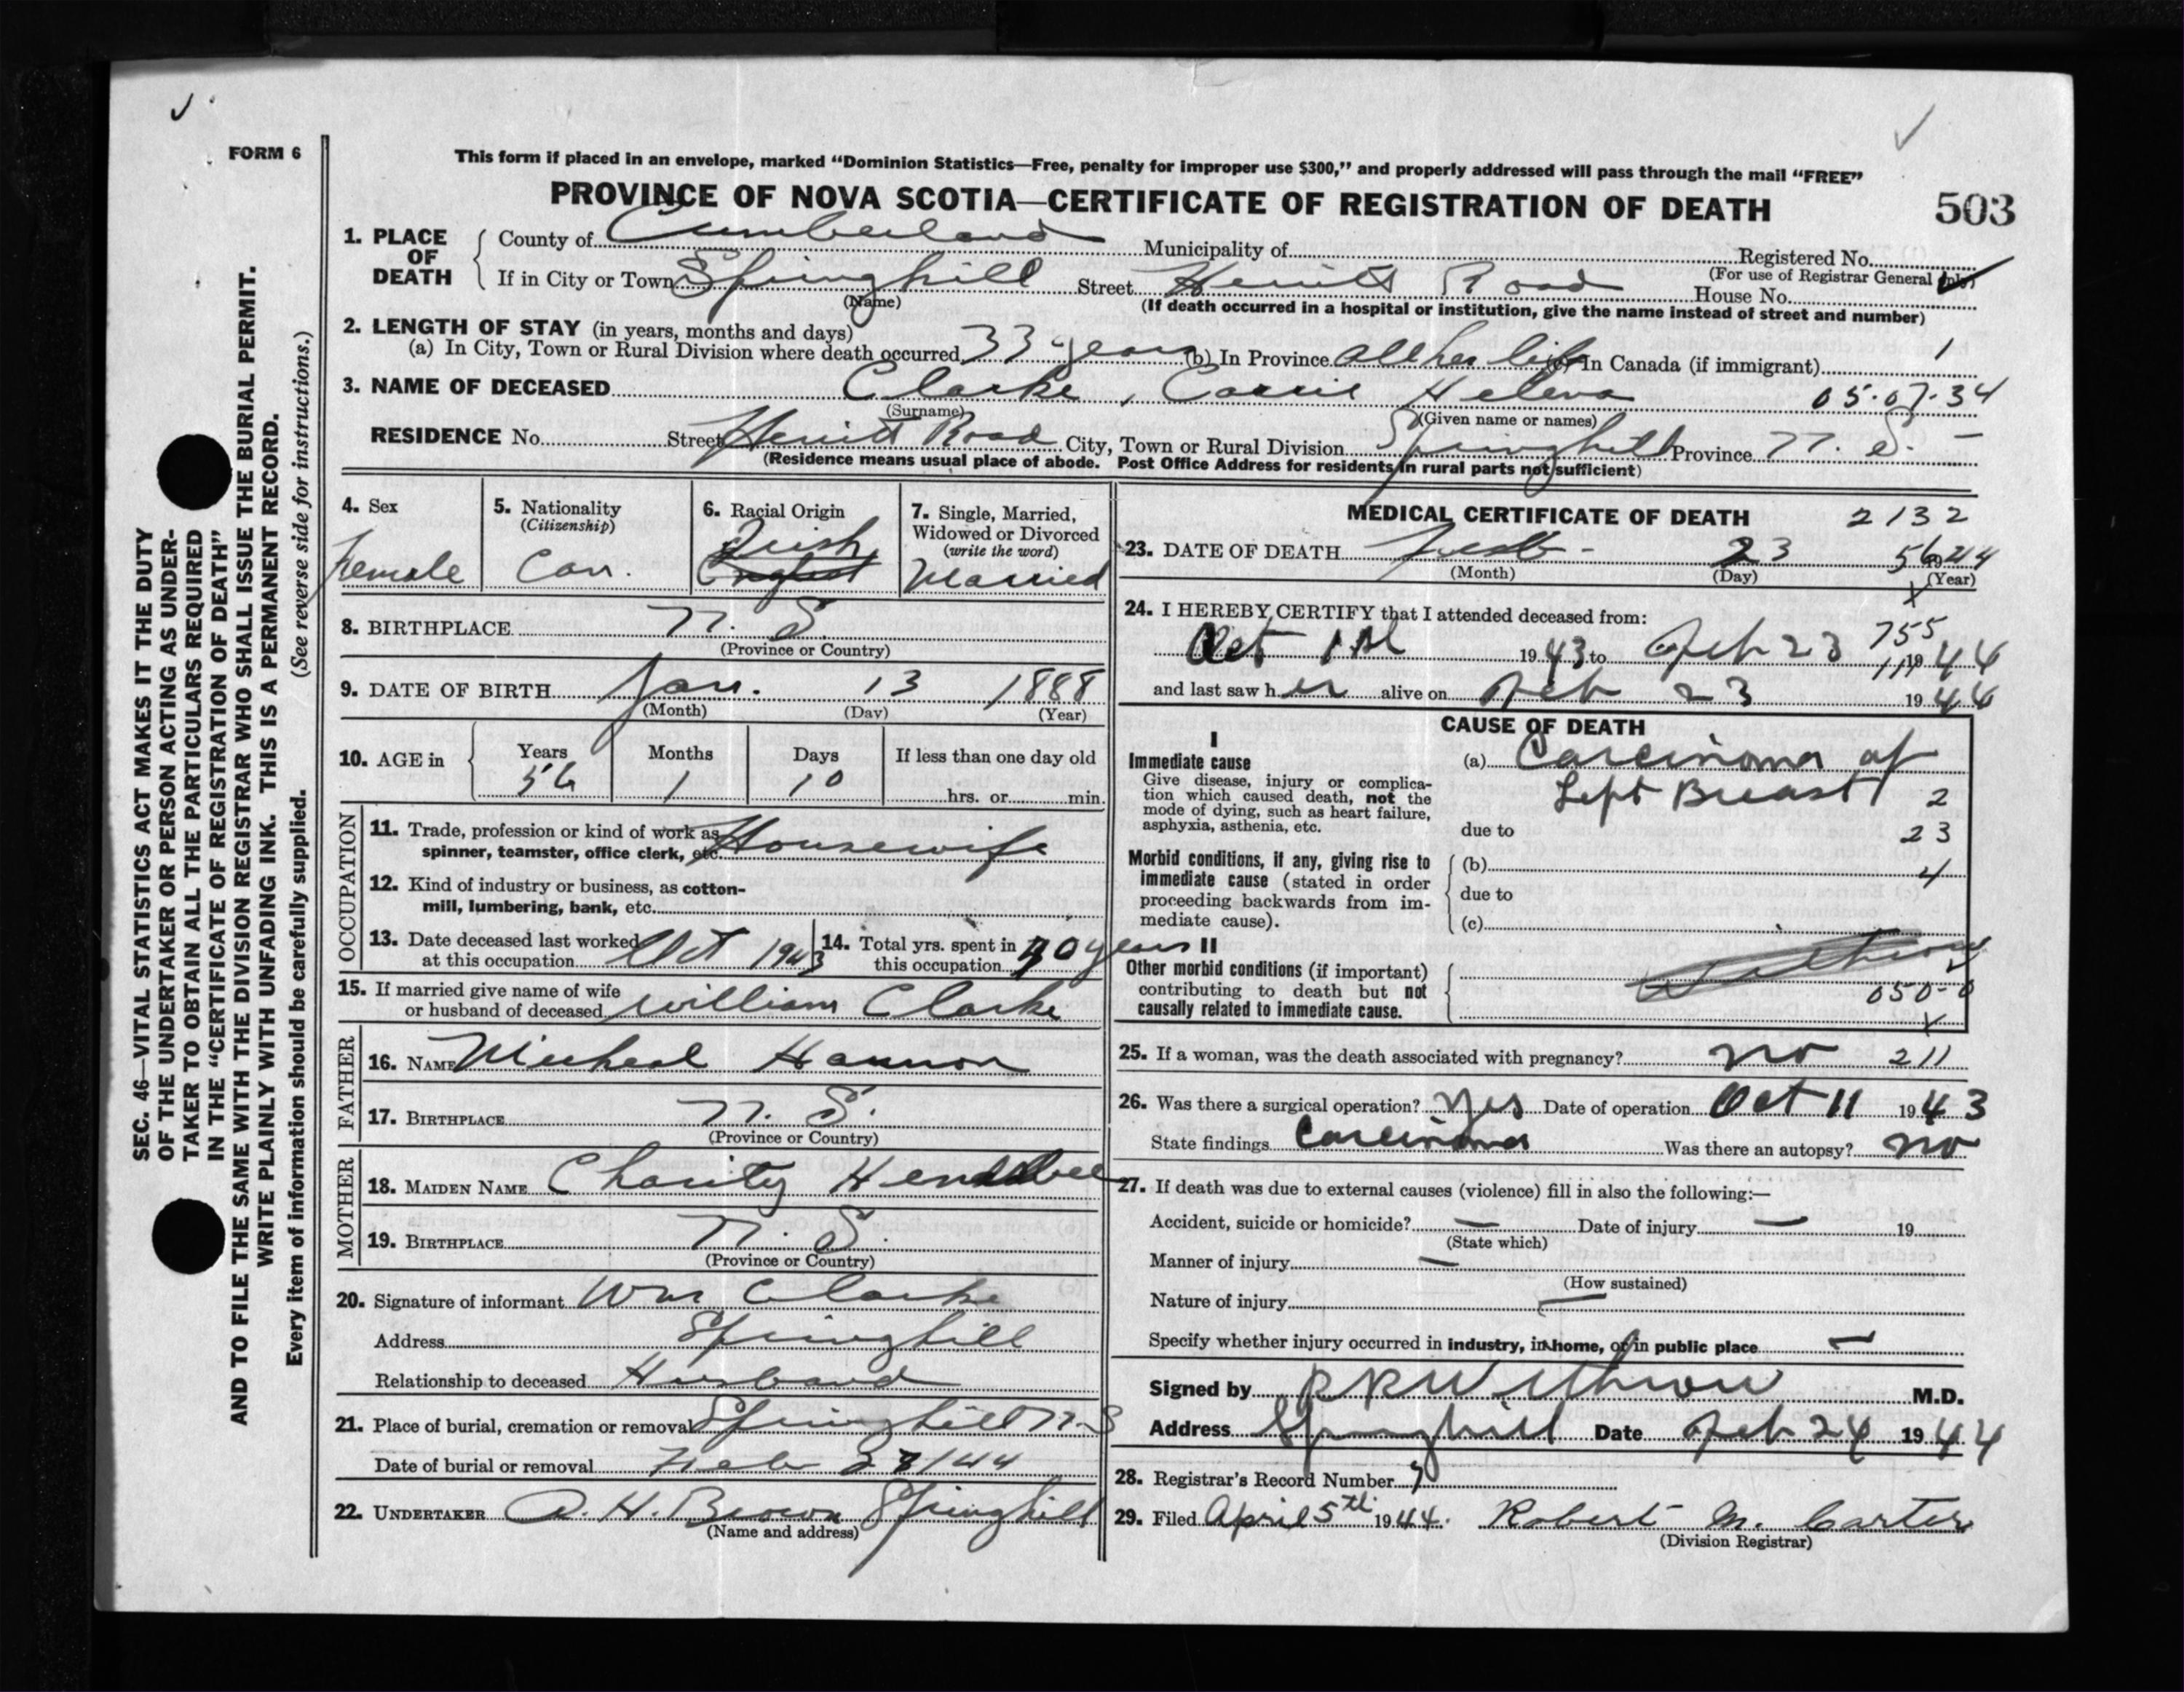 FORM 6
This form if placed in an envelope, marked “Dominion Statistics—Free, penalty for improper use $300,” and properly addressed will pass through the mail “FREE”
PROVINCE OF NOVA SCOTIA—CERTIFICATE OF REGISTRATION OF DEATH
503
1. PLACE OF DEATH
County of Cumberland Municipality of Registered No.
(For use of Registrar General only)
If in City or Town Springhill Street Road House No.
(Name)
(If death occurred in a hospital or institution, give the name instead of street and number)
2. LENGTH OF STAY (in years, months and days)
(a) In City, Town or Rural Division where death occurred 33 years (b) In Province All her life (c) In Canada (if immigrant) 1
3. NAME OF DECEASED Clarke, Carrie Helena 05-07-34
(Surname) (Given name or names)
RESIDENCE No. Street Road City, Town or Rural Division Springhill Province N. S. -
(Residence means usual place of abode. Post Office Address for residents in rural parts not sufficient)
4. Sex
Female
5. Nationality
(Citizenship)
Can.
6. Racial Origin
Irish
English
7. Single, Married,
Widowed or Divorced
(write the word)
Married
8. BIRTHPLACE N. S.
(Province or Country)
9. DATE OF BIRTH Jan. 13 1888
(Month) (Day) (Year)
10. AGE in
Years Months Days If less than one day old
56 1 10 hrs. or min.
OCCUPATION
11. Trade, profession or kind of work as
spinner, teamster, office clerk, etc. Housewife
12. Kind of industry or business, as cotton-
mill, lumbering, bank, etc.
13. Date deceased last worked
at this occupation Oct 1943
14. Total yrs. spent in
this occupation 40 years
15. If married give name of wife
or husband of deceased William Clarke
FATHER
16. NAME Micheal Hannon
17. BIRTHPLACE N. S.
(Province or Country)
MOTHER
18. MAIDEN NAME Charity
19. BIRTHPLACE N. S.
(Province or Country)
20. Signature of informant Wm Clarke
Address Springhill
Relationship to deceased Husband
21. Place of burial, cremation or removal Springhill N-S
Date of burial or removal Feb /44
22. UNDERTAKER A. H. Brown Springhill
(Name and address)
MEDICAL CERTIFICATE OF DEATH 2132
23. DATE OF DEATH Feb - 23 1944
(Month) (Day) (Year)
24. I HEREBY CERTIFY that I attended deceased from:
755
Oct 1st 1943 to Feb 23 1944
and last saw her alive on Feb 23 1944
CAUSE OF DEATH
I
Immediate cause
Give disease, injury or complica-
tion which caused death, not the
mode of dying, such as heart failure,
asphyxia, asthenia, etc.
(a) Carcinoma of
Left Breast 2
due to 23
Morbid conditions, if any, giving rise to
immediate cause (stated in order
proceeding backwards from im-
mediate cause).
(b) 4
due to
(c)
II
Other morbid conditions (if important)
contributing to death but not
causally related to immediate cause.
050-0
X
25. If a woman, was the death associated with pregnancy? no 211
26. Was there a surgical operation? Yes Date of operation Oct 11 1943
State findings Carcinoma Was there an autopsy? no
27. If death was due to external causes (violence) fill in also the following:—
Accident, suicide or homicide? — Date of injury — 19
(State which)
Manner of injury —
(How sustained)
Nature of injury —
Specify whether injury occurred in industry, in home, or in public place —
Signed by Withrow M.D.
Address Springhill Date Feb 24 1944
28. Registrar's Record Number 7
29. Filed April 5th 1944. Robert M. Carter
(Division Registrar)
SEC. 46—VITAL STATISTICS ACT MAKES IT THE DUTY
OF THE UNDERTAKER OR PERSON ACTING AS UNDER-
TAKER TO OBTAIN ALL THE PARTICULARS REQUIRED
IN THE “CERTIFICATE OF REGISTRATION OF DEATH”
AND TO FILE THE SAME WITH THE DIVISION REGISTRAR WHO SHALL ISSUE THE BURIAL PERMIT.
WRITE PLAINLY WITH UNFADING INK. THIS IS A PERMANENT RECORD.
Every item of information should be carefully supplied. (See reverse side for instructions.)